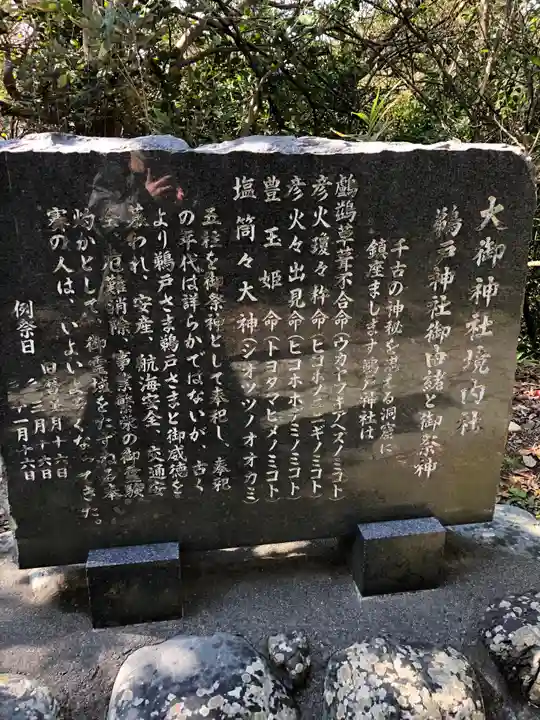 大御神社境内社
鵜戸神社御由緒と御祭神
千古の神秘を湛える洞窟に
鎮座まします鵜戸神社は
鸕鷀草葺不合命(ウカヤフキアヘスノミコト)
彦火瓊々杵命(ヒコホノニニギノミコト)
彦火々出見命(ヒコホホデミノミコト)
豊玉姫命(トヨタマヒメノミコト)
塩筒々大神(シオツツノオオカミ)
五柱を御祭神として奉祀し、奉祀
の年代は詳らかではないが、古く
より鵜戸さま鵜戸さまと御威徳を
慕われ、安産、航海安全、交通安
全、厄難消除、事業繁栄の御霊験
灼かとして、御霊境をたずねる参
賽の人は、いよいよ多くなってきた。
例祭日
十六日
十一月十六日